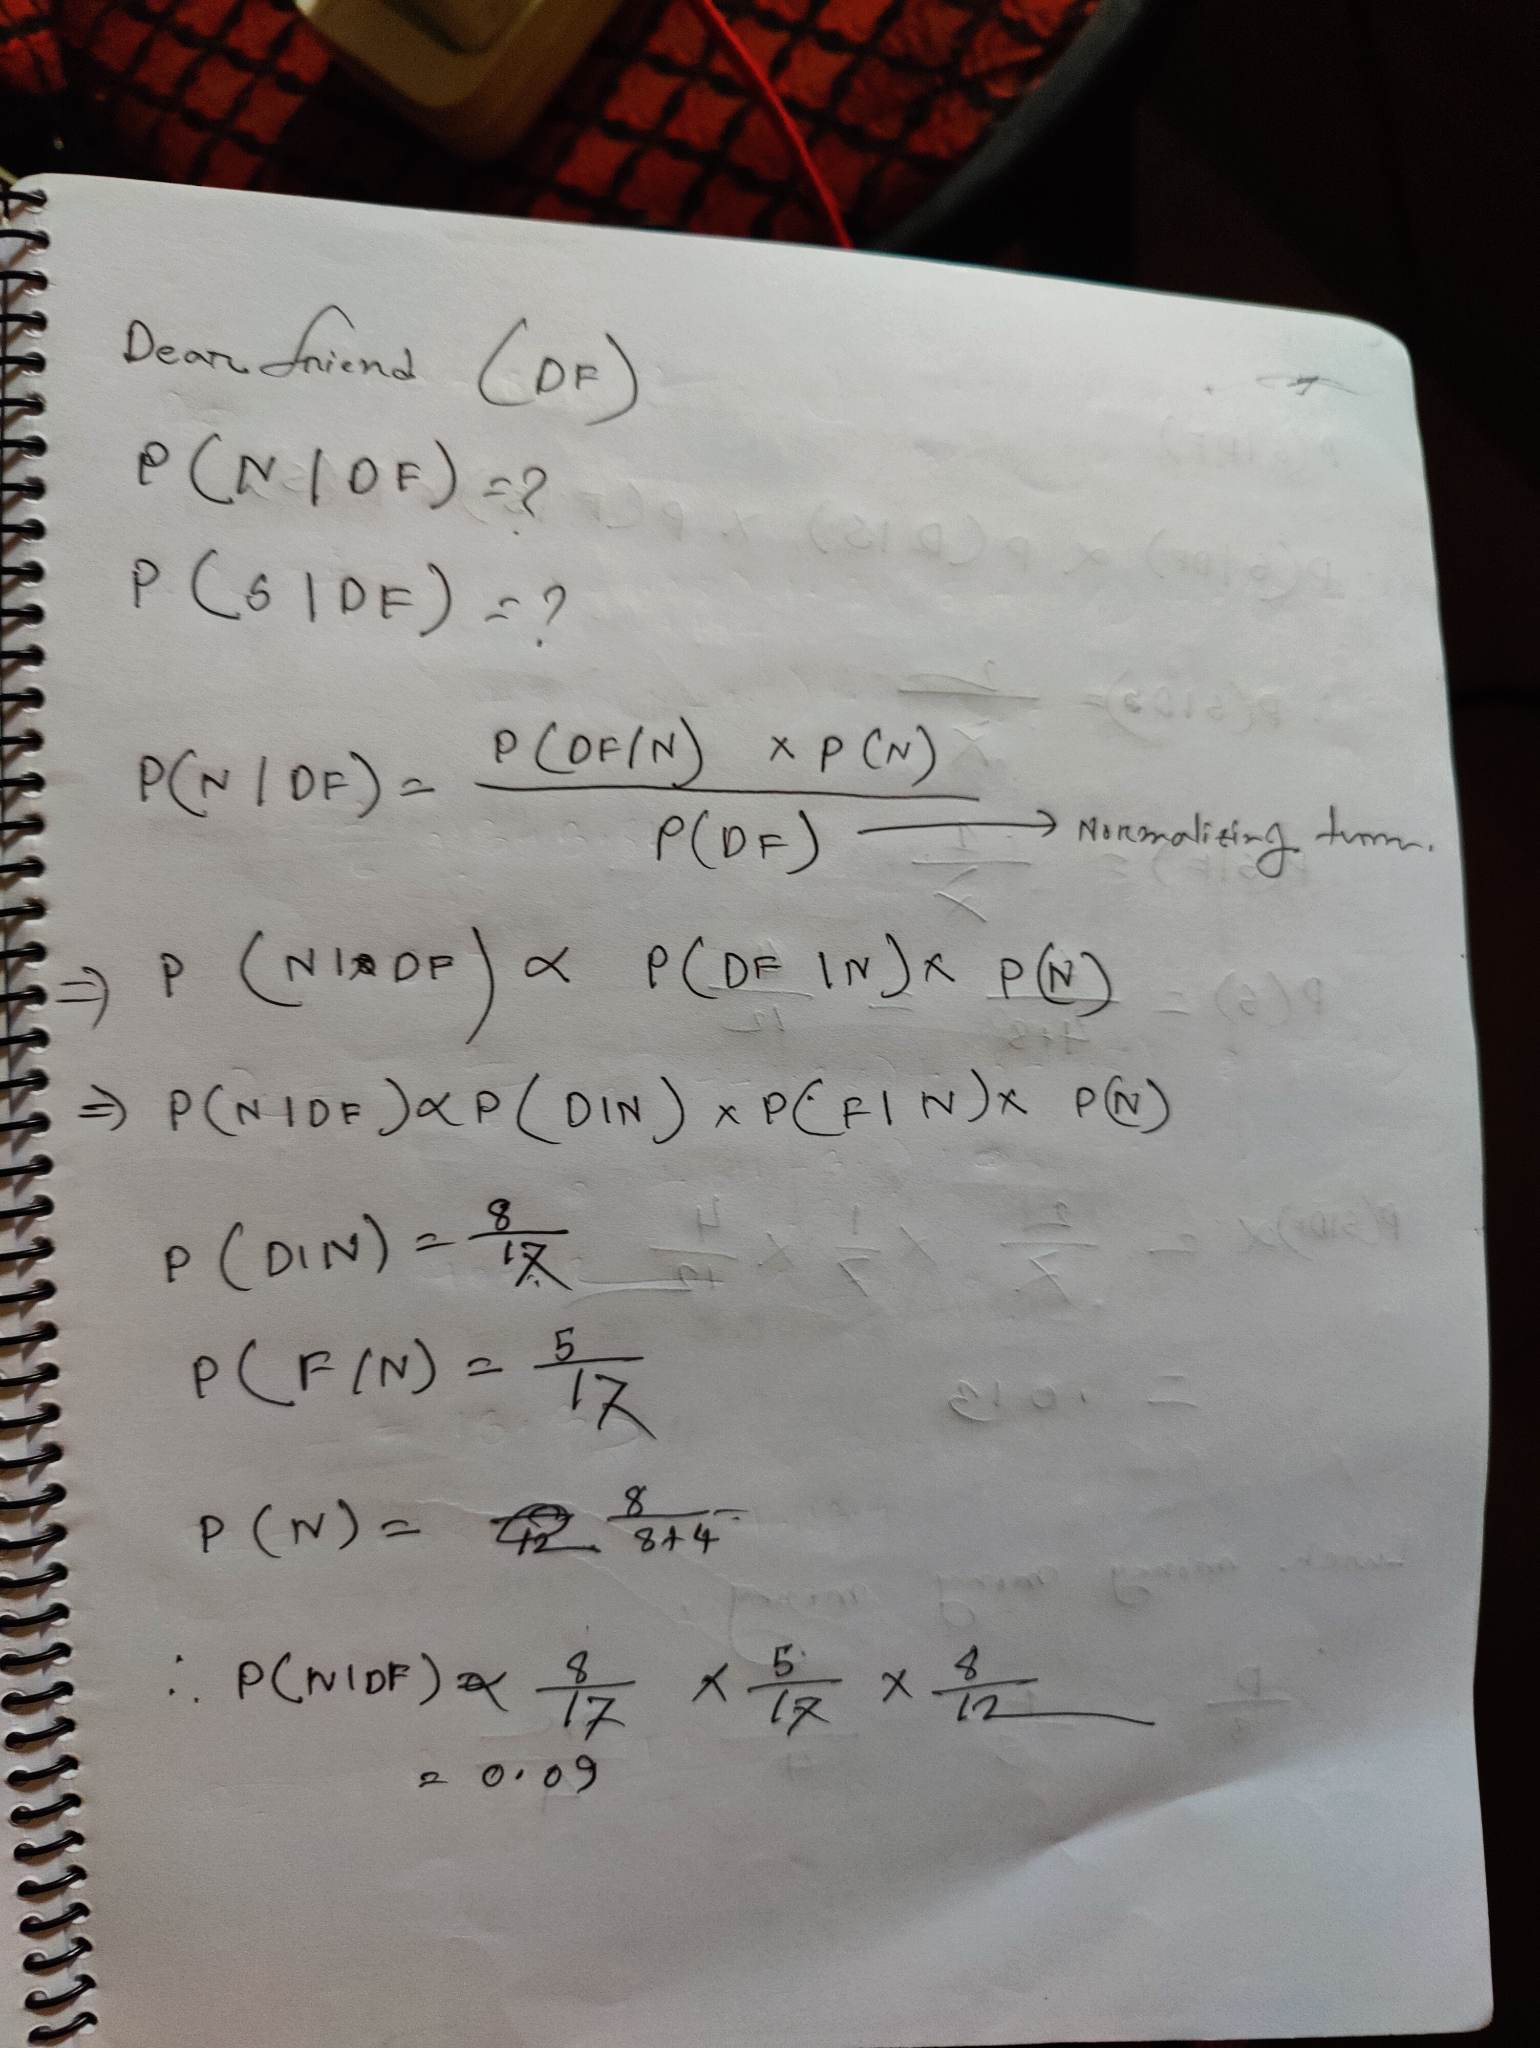 Dear friend (DF)
P(N|DF) = ?
P(S|DF) = ?
P(N|DF) = P(DF|N) × P(N) / P(DF) → Normalizing term.
⇒ P(N|DF) ∝ P(DF|N) × P(N)
⇒ P(N|DF) ∝ P(D|N) × P(F|N) × P(N)
P(D|N) = 8/17
P(F|N) = 5/17
P(N) = 8/8+4
∴ P(N|DF) ∝ 8/17 × 5/17 × 8/12
= 0.09